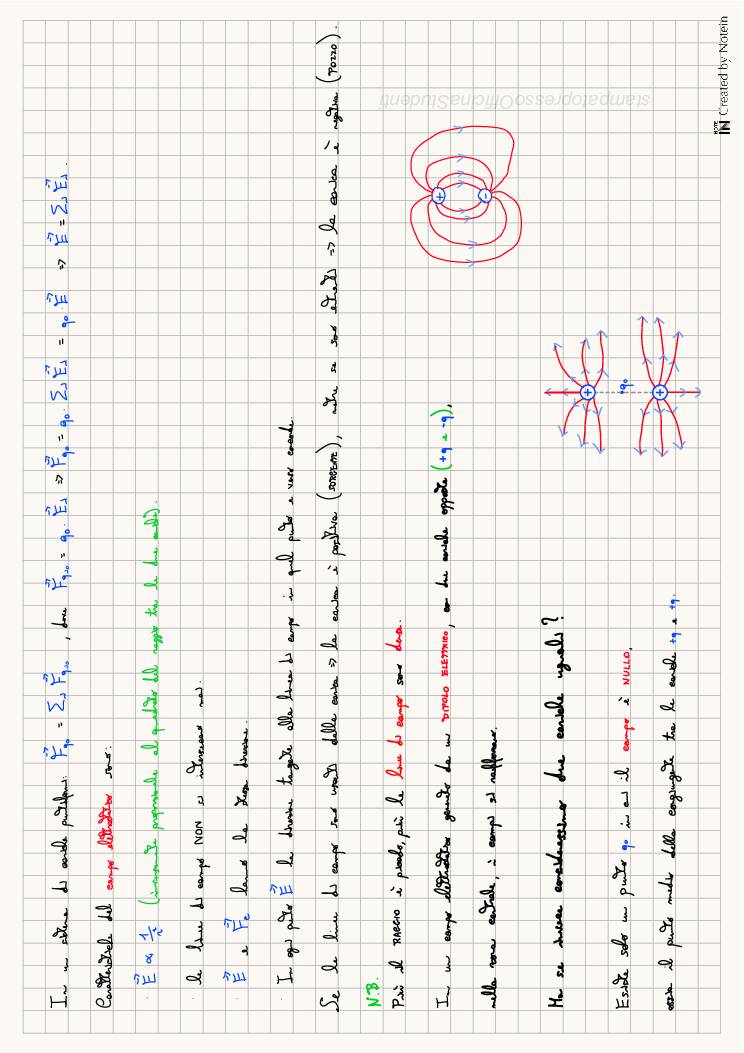 In un sistema di cariche puntiformi: F⃗q₀ = Σᵢ F⃗qᵢ₀ , dove F⃗qᵢ₀ = q₀ · E⃗ᵢ => F⃗q₀ = q₀ · Σᵢ E⃗ᵢ = q₀ · E⃗ => E⃗ = Σᵢ E⃗ᵢ .
Caratteristiche del campo elettrostatico sono:
· E⃗ α 1/r² (inversamente proporzionale al quadrato del raggio tra le due cariche).
· le linee di campo NON si intersecano mai.
· E⃗ e F⃗e hanno la stessa direzione.
· In ogni punto E⃗ ha direzione tangente alle linee di campo in quel punto e verso concorde.
Se le linee di campo sono uscenti dalla carica => la carica è positiva (SORGENTE), mentre se sono entranti => la carica è negativa (POZZO).
N.B.
Più il RAGGIO è piccolo, più le linee di campo sono dense.
In un campo elettrostatico generato da un DIPOLO ELETTRICO, con due cariche opposte (+q e -q),
nella zona centrale, i campi si rafforzano.
+
-
Ma se invece considerassimo due cariche uguali?
Esiste solo un punto q₀ in cui il campo è NULLO,
ossia il punto medio della congiungente tra le cariche +q e +q.
+
+q₀
+
stampatopressoOfficinaStudenti
NOTE IN Created by Notein